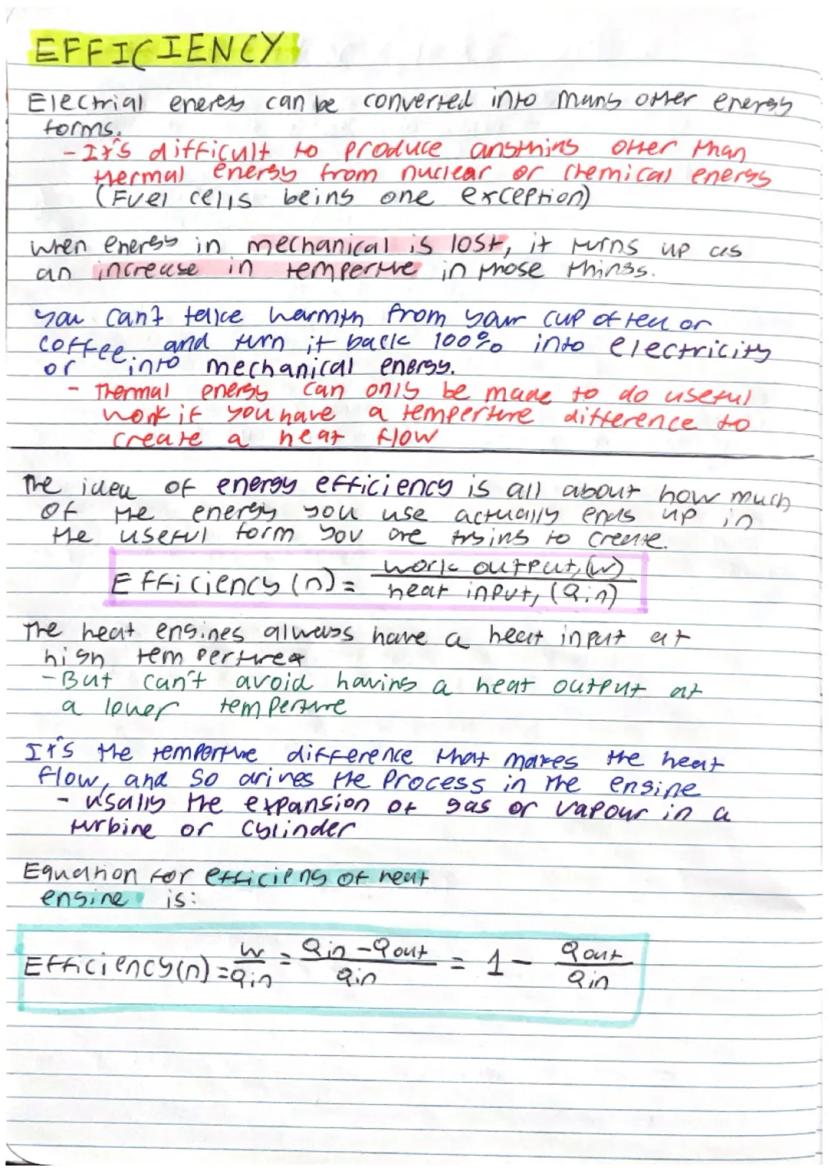 EFFICIENCY
Electrial energy can be converted into many other energy
forms.
- It's difficult to produce anything other than
thermal energy from nuclear or chemical energy
(Fuel cells being one exception)
when energy in mechanical is lost, it turns up as
an increase in temperture in those things.
you can't take warmth from your cup of tea or
coffee and turn it back 100% into electricity
or into mechanical energy.
- Thermal energy can only be made to do useful
work if you have a temperture difference to
create a heat flow
The idea of energy efficiency is all about how much
of the energy you use actually ends up in
the useful form you are trying to create.
Efficiency (n) = work output, (w) / heat input, (Qin)
The heat engines always have a heat input at
high temperture
- But can't avoid having a heat output at
a lower temperture
It's the temperture difference that makes the heat
flow, and so drives the process in the engine
- usally the expansion of gas or vapour in a
turbine or cylinder
Equation for efficieny of heat
engine is:
Efficiency(n) = w/Qin = Qin - Qout/Qin = 1 - Qout/Qin